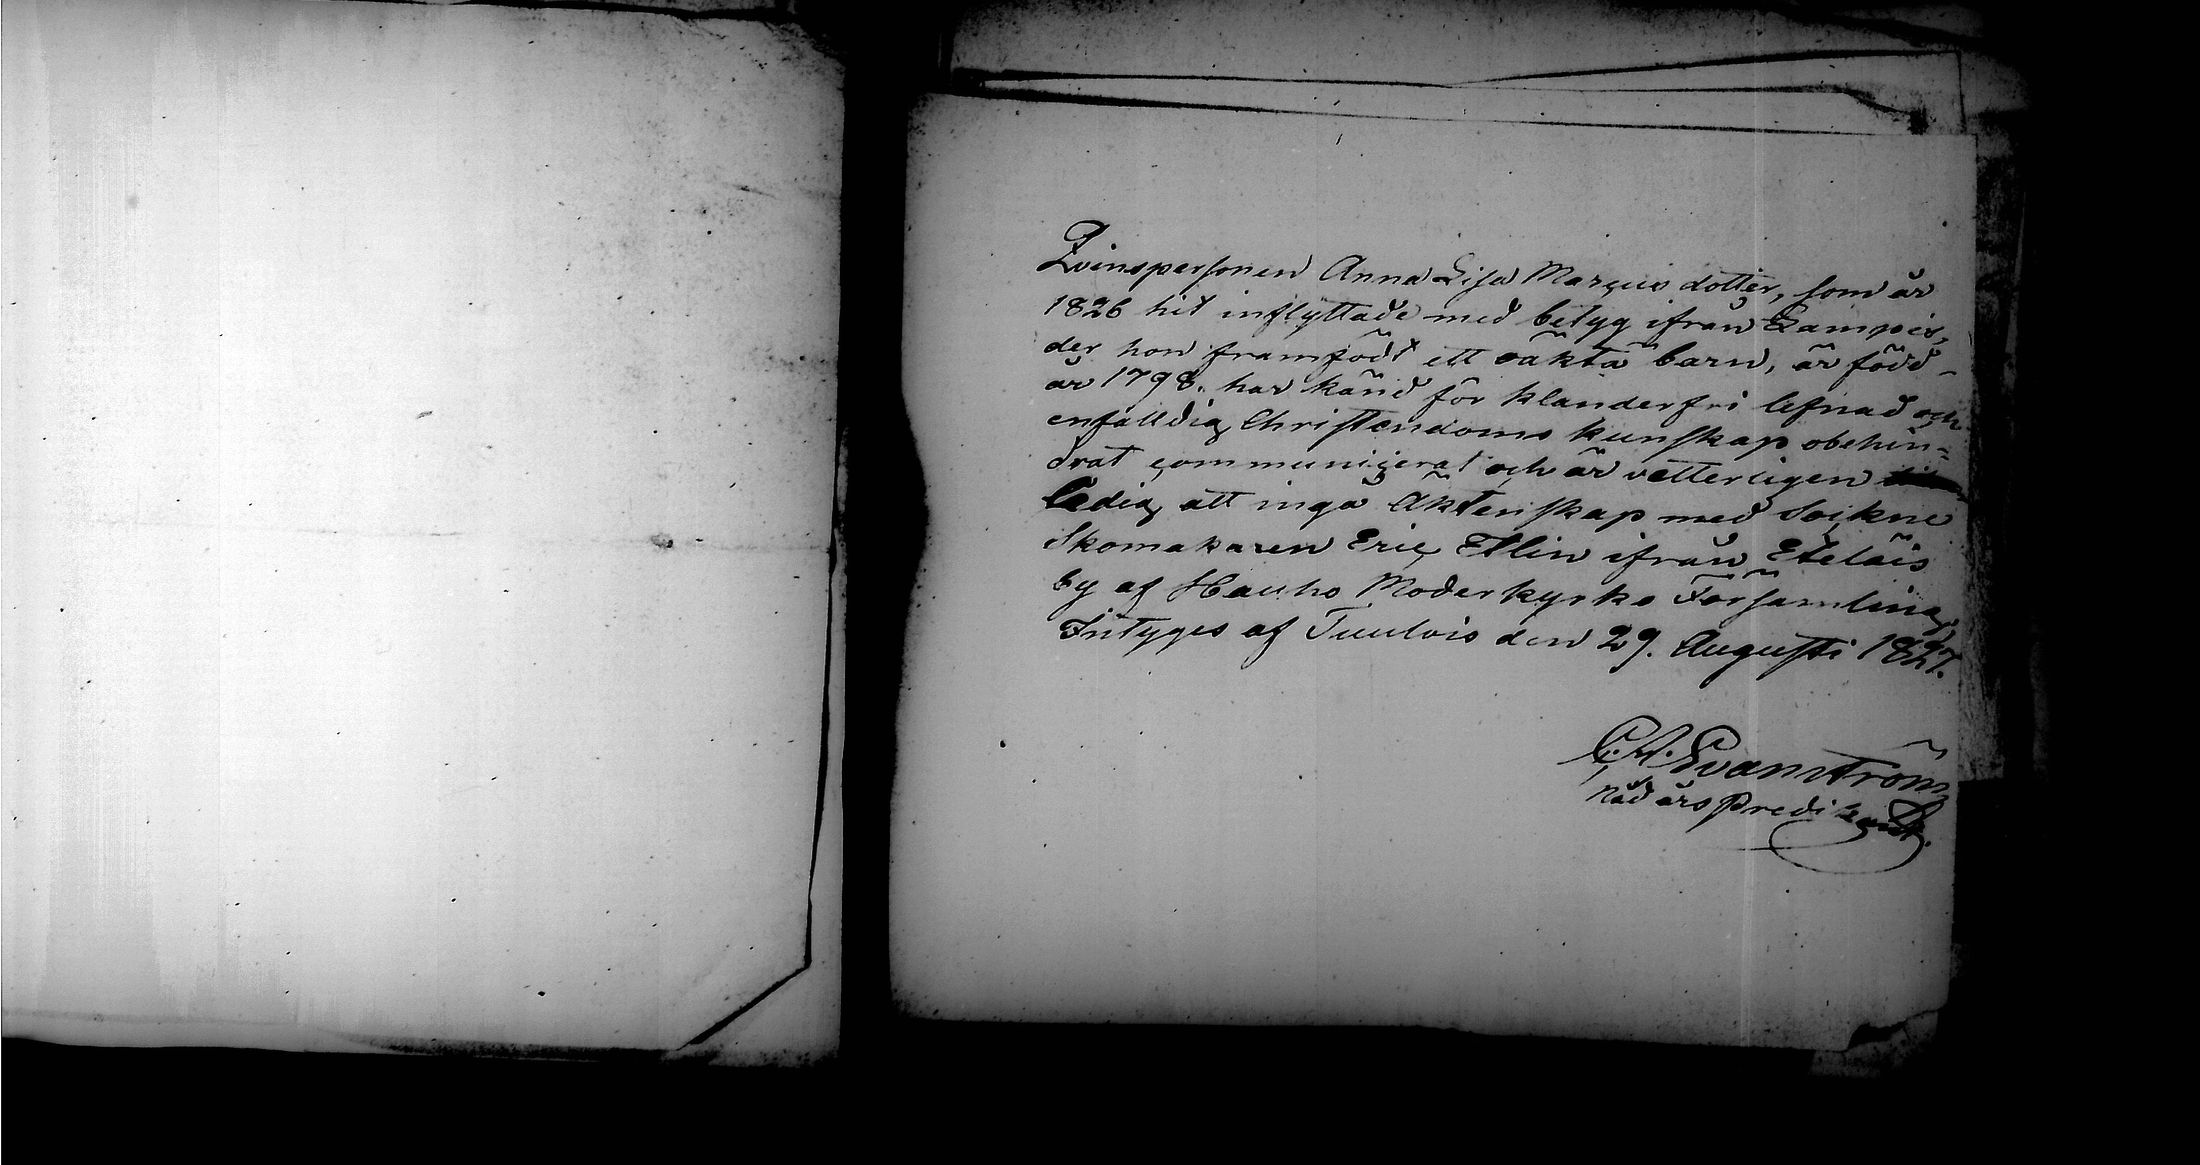 Qvinspersonen Anna Lisa Marcus dotter, som år
1826 hit inflyttade med betyg ifrån Lampis,
der hon framfödt ett oäkta barn, är född
år 1798. har känd för klanderfri lefnad och
enfalldig Christendoms kunskap obehin=
drat communicerat och är vetterligen
ledig att ingå Äktenskap med Sockne
Skomakaren Eric Flin ifrån Eteläis
by af Hauho Moderkyrko Församling,
Intyges af Tuulois den 29. Augusti 1827.
C. A. Svanström
Nådårs Predikant.